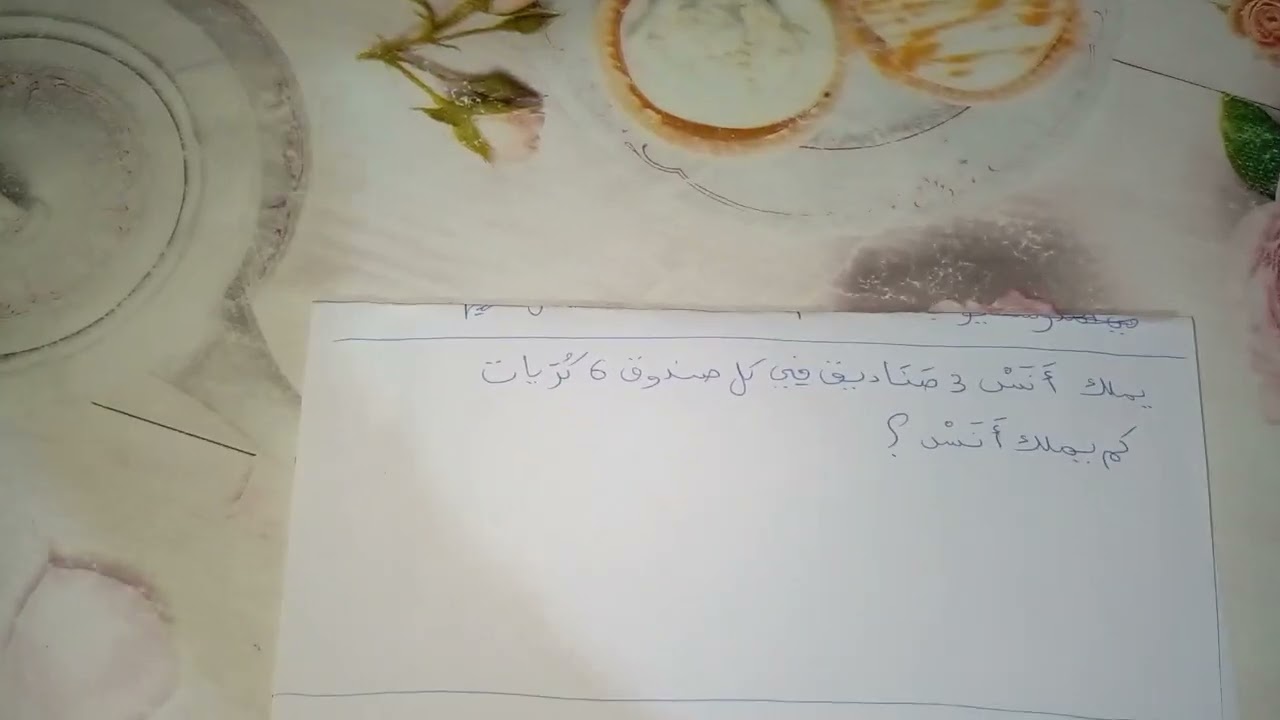 يملك أَنَسْ 3 صَنَاديق فِي كل صندوق 6 كُرَيات
كم يملك أَنَسْ ؟